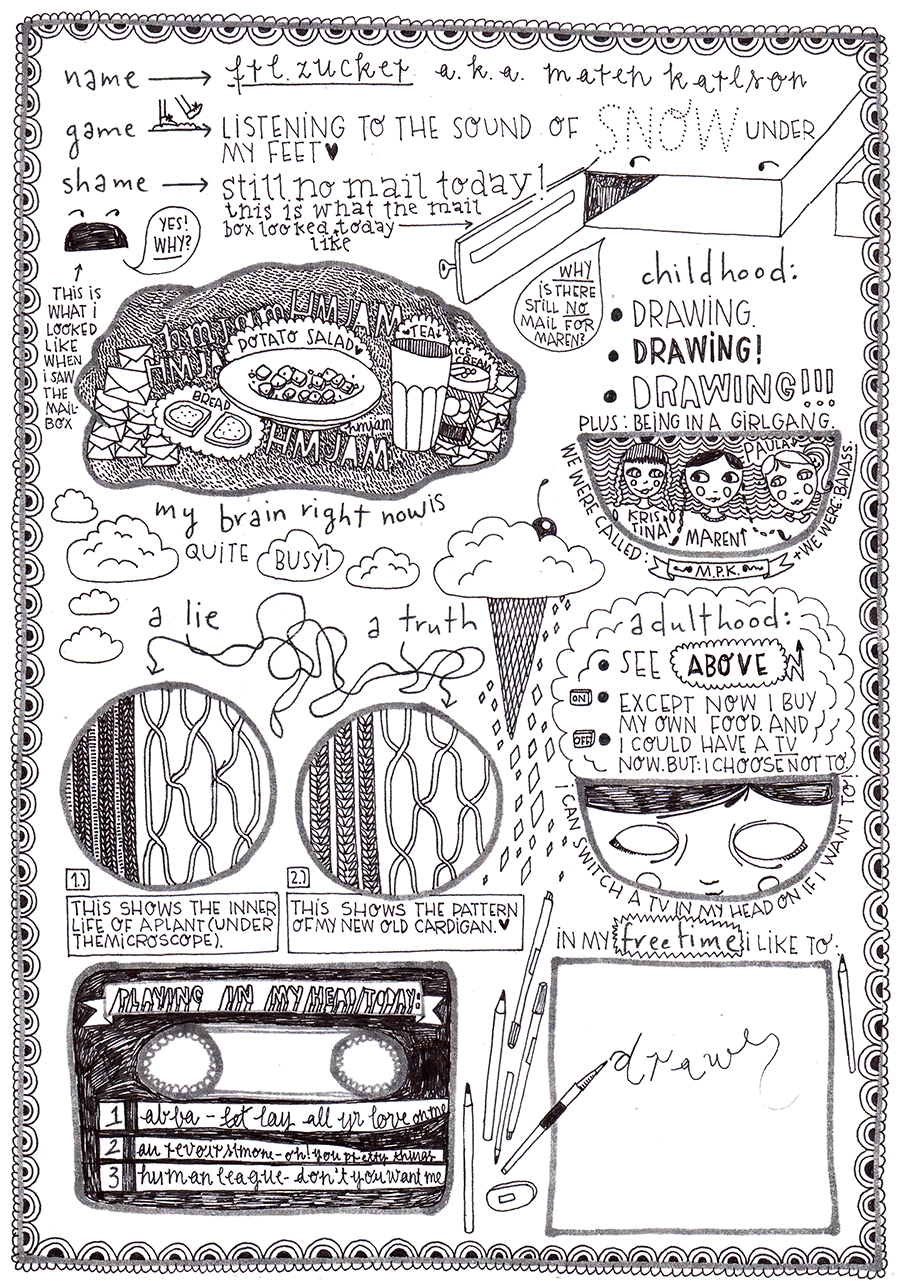 name frl. zucker a.k.a. maren karlson
game LISTENING TO THE SOUND OF SNOW UNDER
MY FEET♥
shame still no mail today!
this is what the mail
box looked today
like
YES!
WHY?
THIS IS
WHAT I
LOOKED
LIKE
WHEN
I SAW
THE
MAIL-
BOX
WHY
IS THERE
STILL NO
MAIL FOR
MAREN?
hmjam HMJAM
HMJAM
POTATO SALAD♥
TEA
ICE
CREAM
BREAD
hmjam
HMJAM
my brain right now is
QUITE BUSY!
childhood:
• DRAWING.
• DRAWING!
• DRAWING!!!
PLUS: BEING IN A GIRLGANG.
WE WERE CALLED:
KRIS
TINA
MAREN
PAULA
M.P.K.
+WE WERE BADASS.
a lie
a truth
1.)
THIS SHOWS THE INNER
LIFE OF A PLANT (UNDER
THE MICROSCOPE).
2.)
THIS SHOWS THE PATTERN
OF MY NEW OLD CARDIGAN.♥
adulthood:
• SEE ABOVE
ON • EXCEPT NOW I BUY
MY OWN FOOD. AND
OFF • I COULD HAVE A TV
NOW. BUT: I CHOOSE NOT TO.
I CAN SWITCH A TV IN MY HEAD ON IF I WANT TO!
IN MY freetime I LIKE TO:
draw
PLAYING IN MY HEAD TODAY:
1 abba - lat lay all yr love on me
2 au revoir simone - oh! you pretty things
3 human league - don't you want me